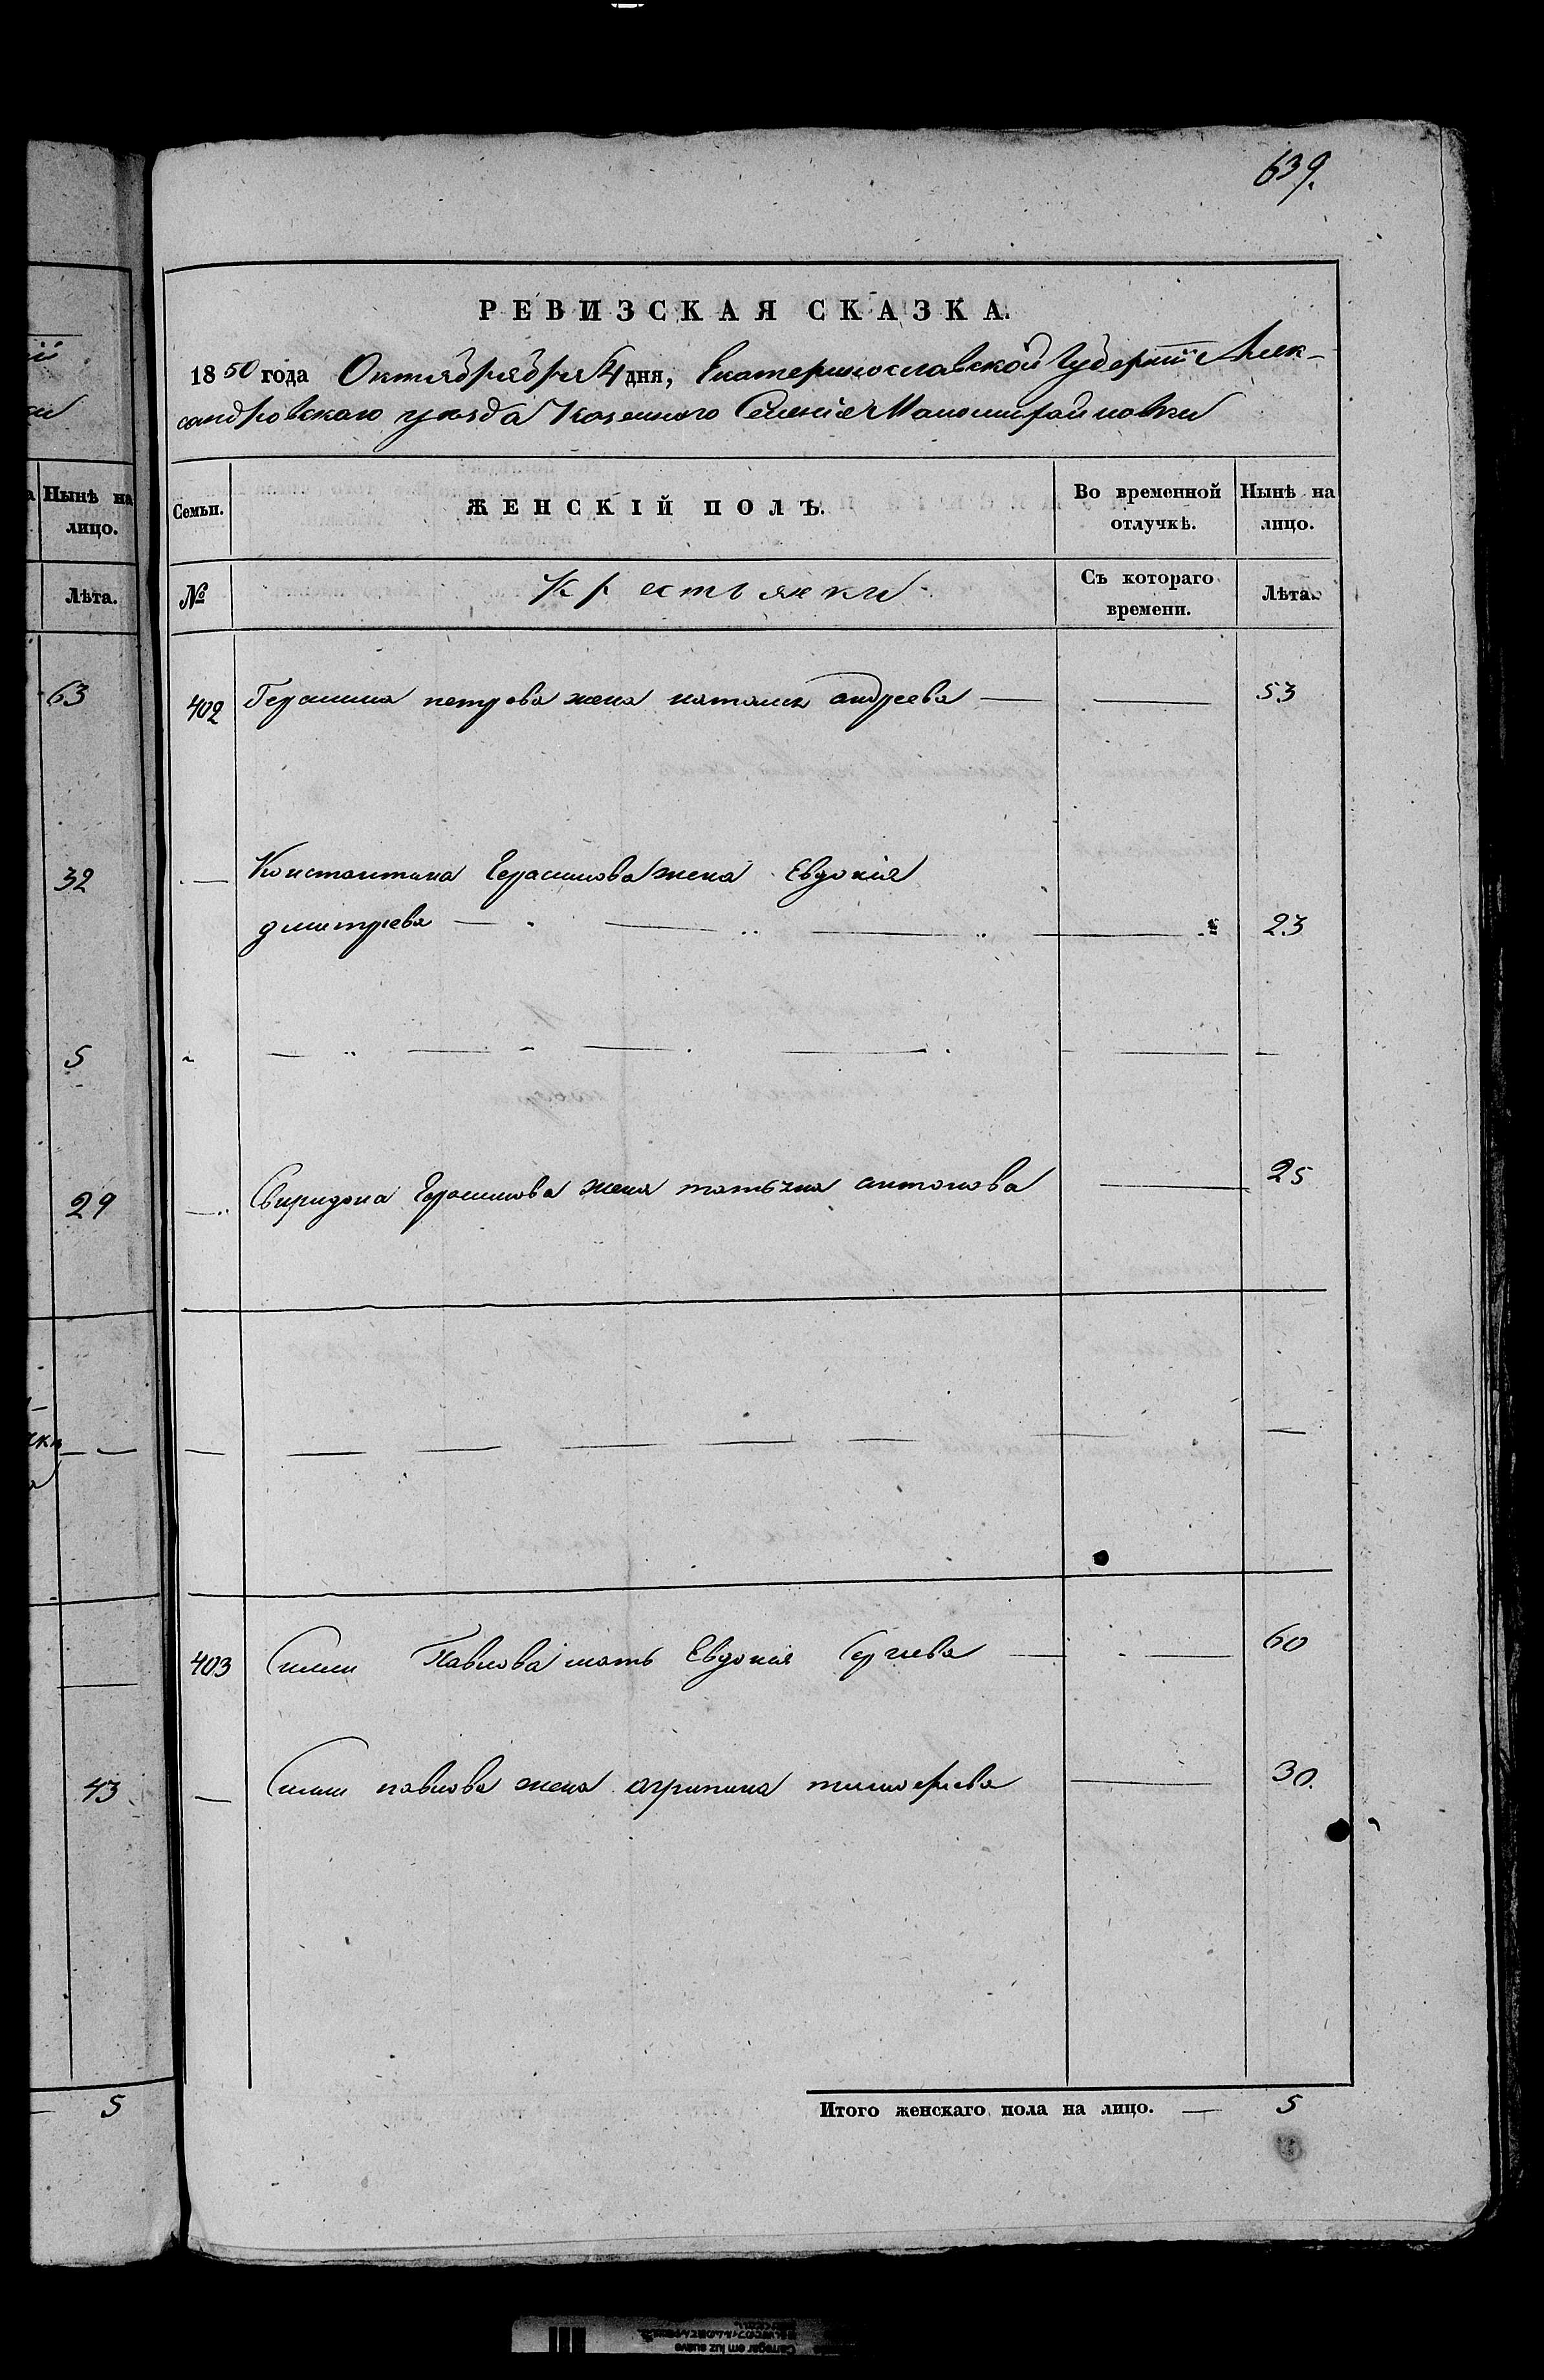 639.
РЕВИЗСКАЯ СКАЗКА.
1850 года Октябрября 4 дня, Екатеринославской Губернiи Алек-
сандровскаго уезда Казенного Селенiя Маломихайловки
Нынѣ на
лицо.
Лѣта.
63
32
5
29
43
5
Семьи.
ЖЕНСКIЙ ПОЛЪ.
Во временной
отлучкѣ.
Нынѣ на
лицо.
№
Крестьянки
Съ котораго
времени.
Лѣта.
402 Герасима петрова жена наталия андреева — — 53
— Константина Герасимова жена Евдокiя
дмитрева — — — — 23
— Свиридона Герасимова жена татьяна антонова — 25
403 Павлова мать Евдокия Сергiева — — 60
— павлова жена агрипина тимофiева — 30.
Итого женскаго пола на лицо. — 5